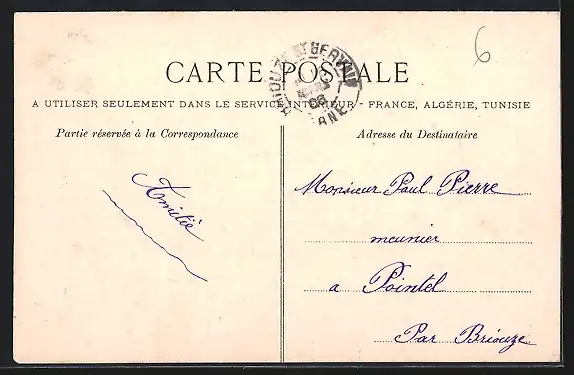 6
CARTE POSTALE
A UTILISER SEULEMENT DANS LE SERVICE INTÉRIEUR - FRANCE, ALGÉRIE, TUNISIE
Partie réservée à la Correspondance
Adresse du Destinataire
Amitié
Monsieur Paul Pierre
meunier
a Pointel
Par Briouze